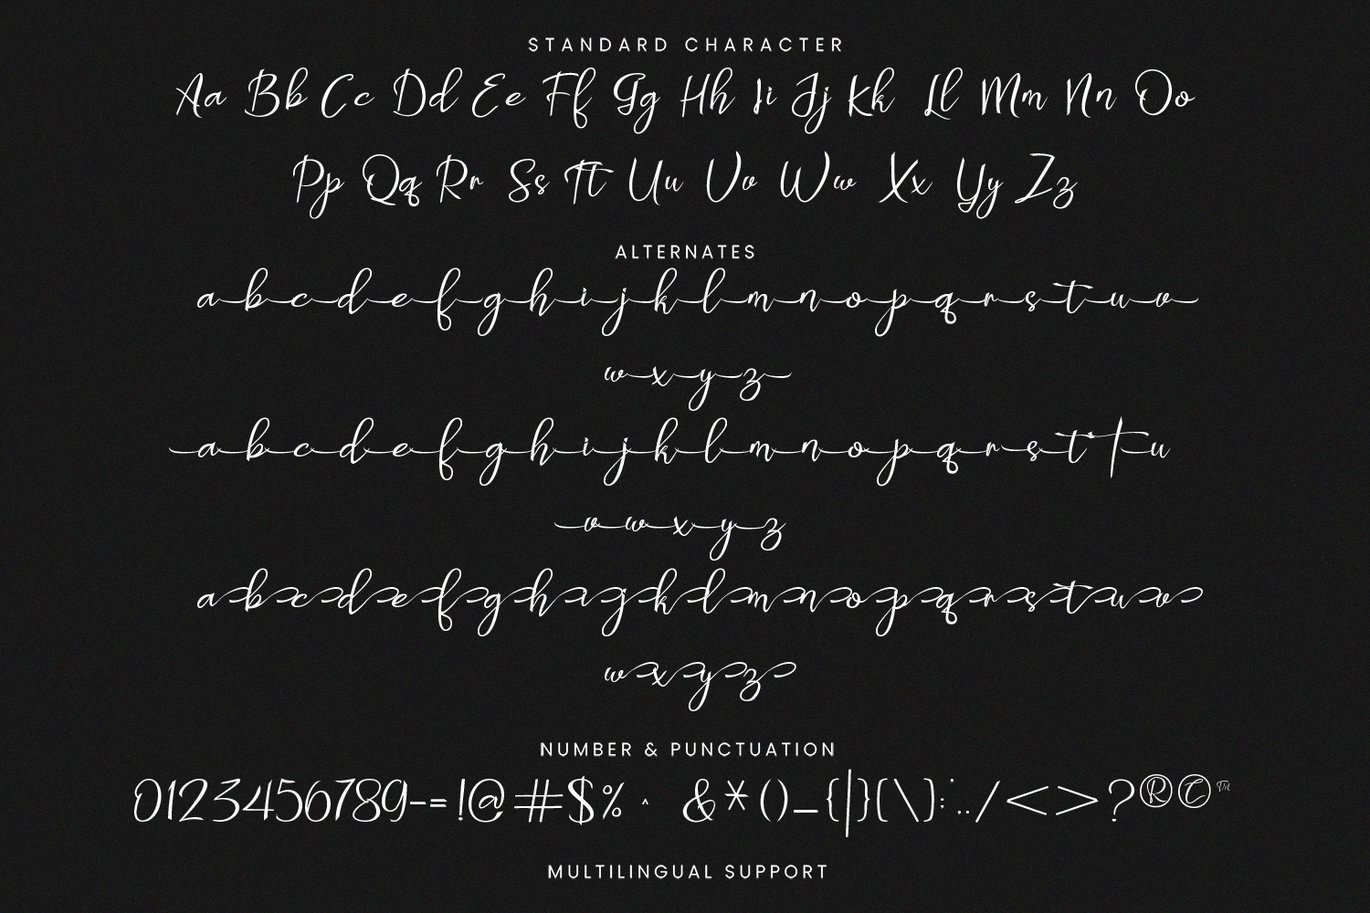 STANDARD CHARACTER
Aa Bb Cc Dd Ee Ff Gg Hh Ii Jj Kk Ll Mm Nn Oo
Pp Qq Rr Ss Tt Uu Vv Ww Xx Yy Zz
ALTERNATES
a b c d e f g h i j k l m n o p q r s t u v
w x y z
a b c d e f g h i j k l m n o p q r s t t u
v w x y z
a b c d e f g h i j k l m n o p q r s t u v
w x y z
NUMBER & PUNCTUATION
0123456789-=!@#$% ^ &*()_{|}[\]:;../<>?®©™
MULTILINGUAL SUPPORT